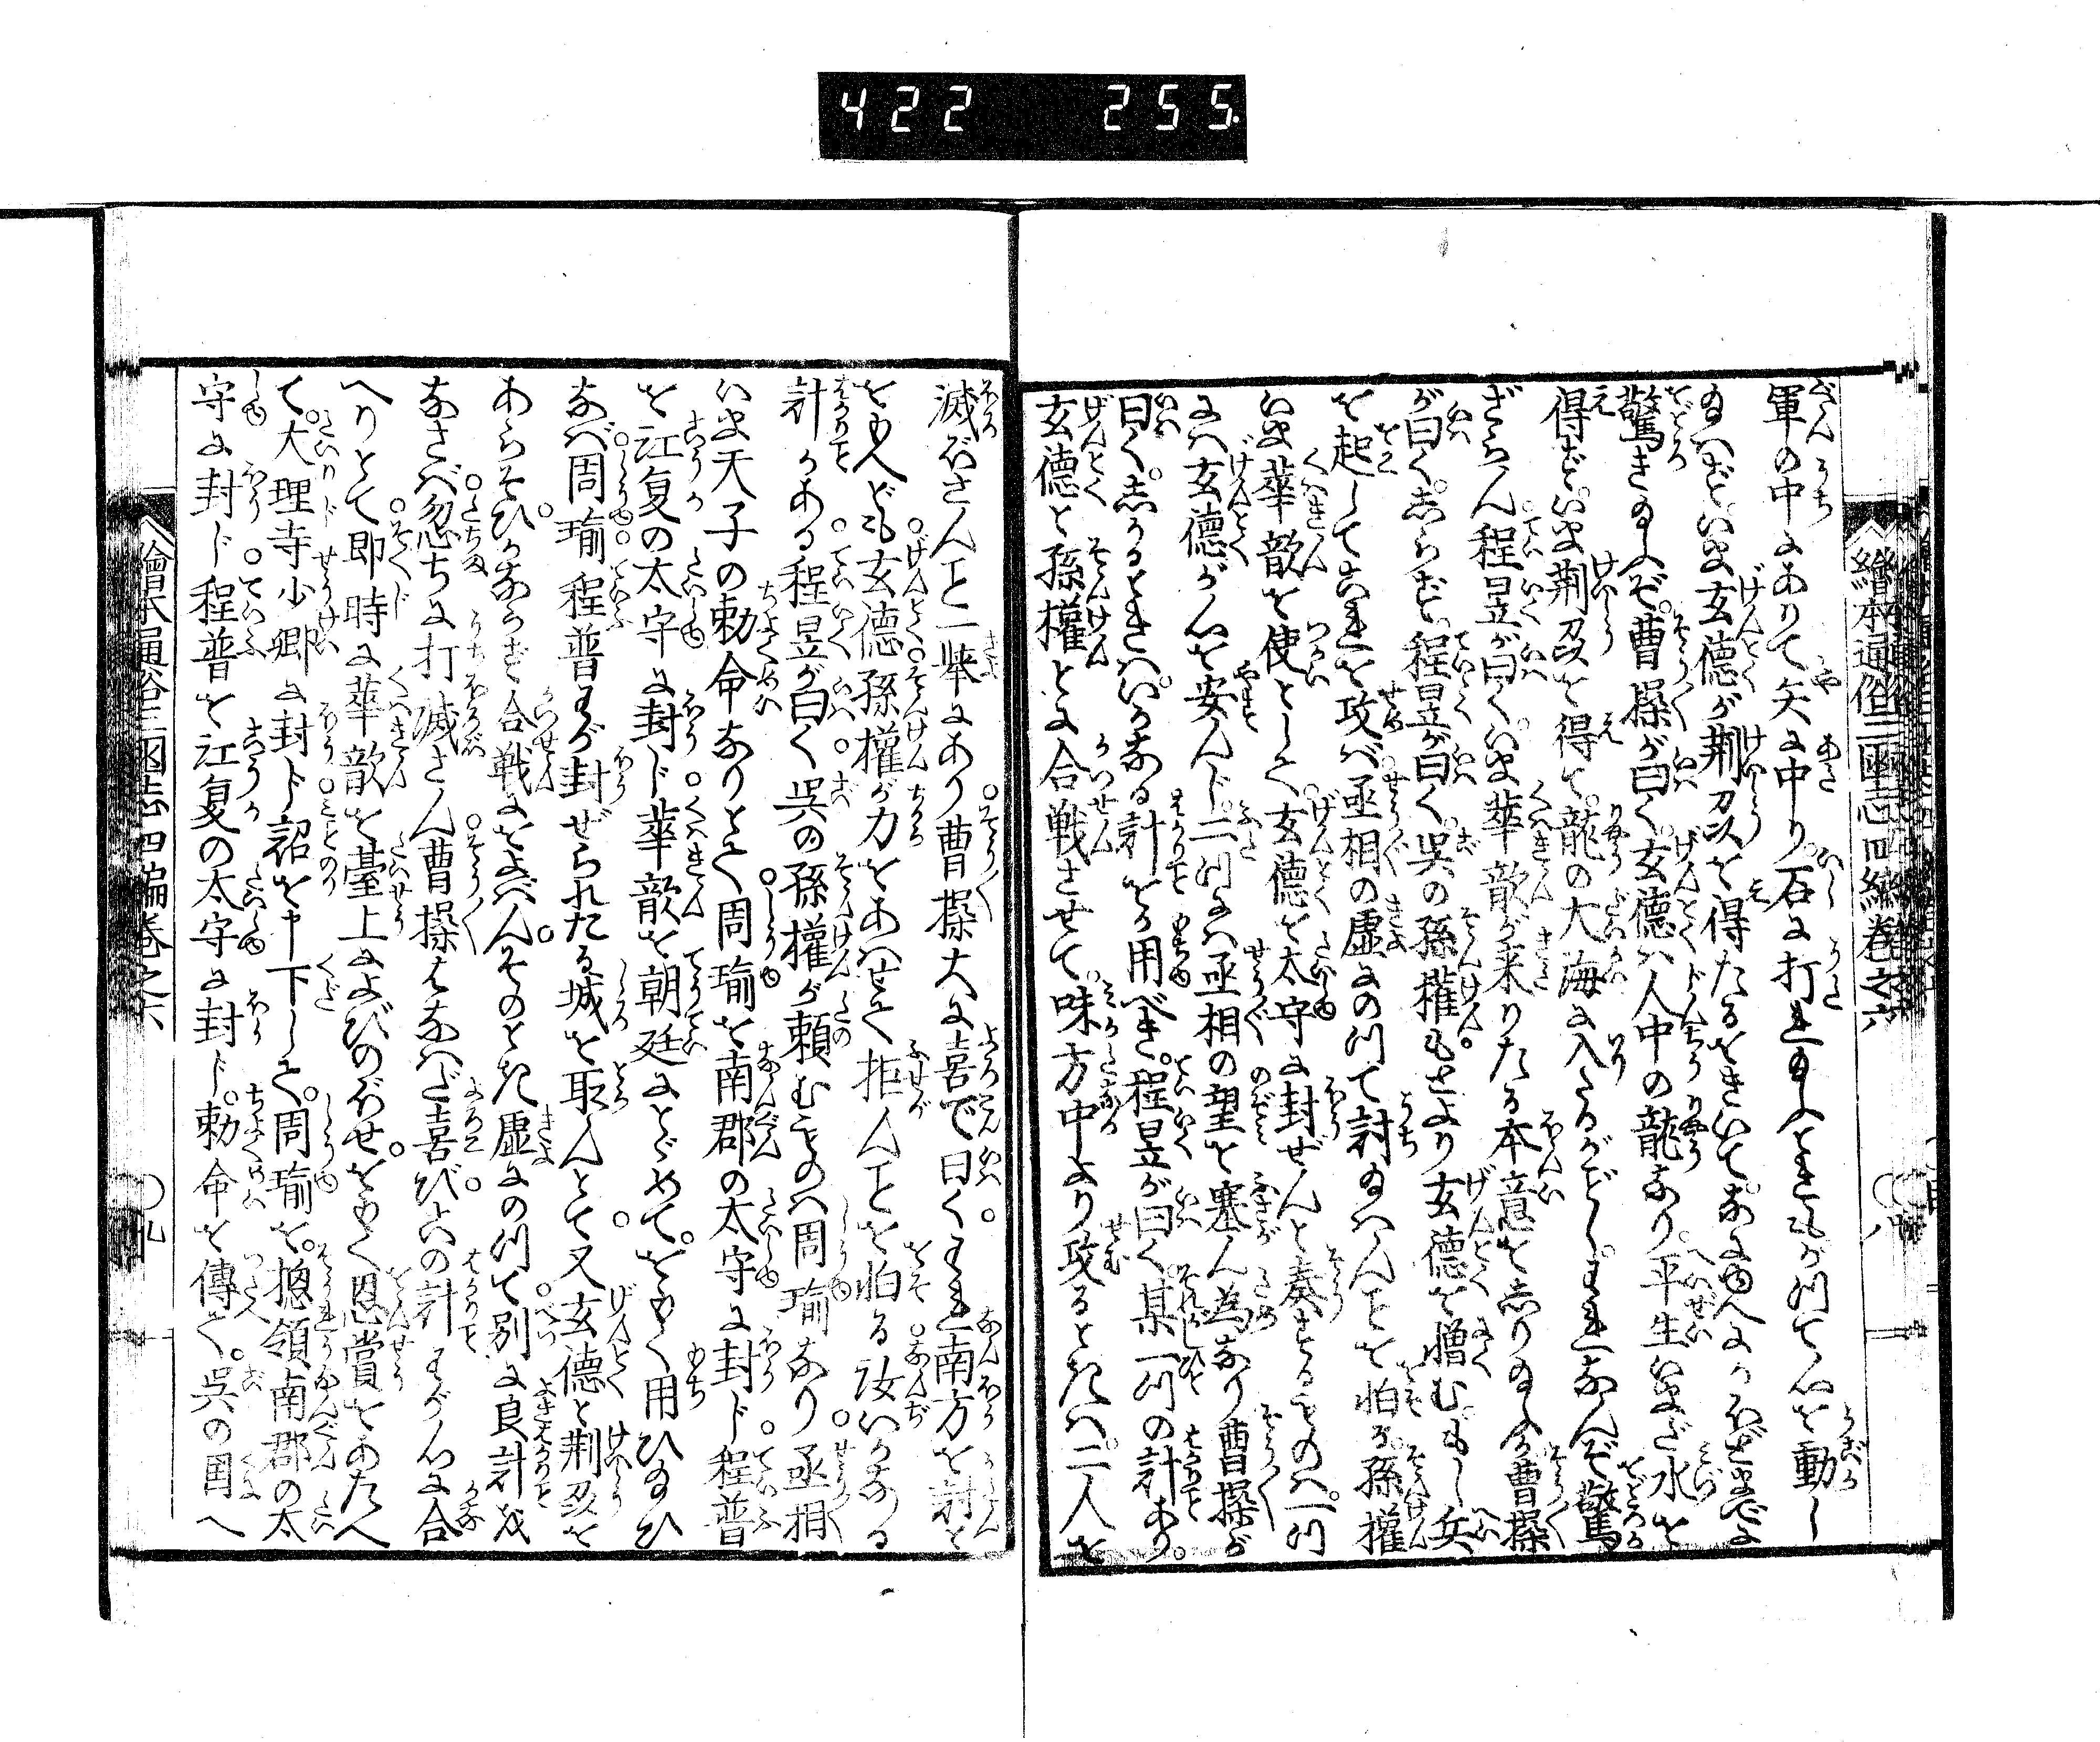 422 255
繪本通俗三國志四編卷之六 〇八
軍の中にありて矢に中り。石に打れ玉へどもかつて心を動し
玉はず。いま玄德が荆刕を得たるをきいて。なにゆへにかほどまでに
驚き玉ふぞ。曹操が曰く。玄德は人中の龍なり。平生いまだ水を
得ず。いま荆刕を得て。龍の大海に入るがごとし。われなんぞ驚
ざらん程昱が曰く。いま華歆が来りたる本意を志り玉ふか曹操
が曰く。志らず。程昱が曰く呉の孫權もとより玄德を憎む。もし兵
を起してこれを攻ば丞相の虚にのつて討玉はんことを怕る。孫權
いま華歆を使として。玄德を太守に封ぜんと奏するものは。一つ
には玄德が心を安んじ。二つには丞相の望を塞ん為なり曹操が
曰く。志かるときは。いかなる計をか用べき。程昱が曰く某一つの計あり。
玄德と孫權とに合戦させて。味方中より攻るときは。二人を
滅ぼさんこと一挙にあり曹操大に喜で曰く。われ南方を討と
をもへども玄德孫權が力をあはせて拒んことを怕る汝いかなる
計かある程昱が曰く呉の孫權が頼むものは周瑜なり丞相
いま天子の勅命なりとて周瑜を南郡の太守に封じ程普
を江夏の太守に封じ華歆を朝廷にとゞめて。をもく用ひ玉ひ
なば周瑜程普わが封ぜられたる城を取んとて又玄德と荆刕を
あらそひ。かならず合戦にをよばん。そのとき虚にのつて別に良計を
なさば忽ちに打滅さん曹操はなはだ喜び。この計わが心に合
へりとて即時に華歆を臺上によびのぼせ。をもく恩賞をあたへ
て。大理寺少卿に封じ詔を申下して。周瑜を。摠領南郡の太
守に封じ程普を江夏の太守に封じ。勅命を傳て。呉の国へ
繪本通俗三國志四編卷之六 〇九